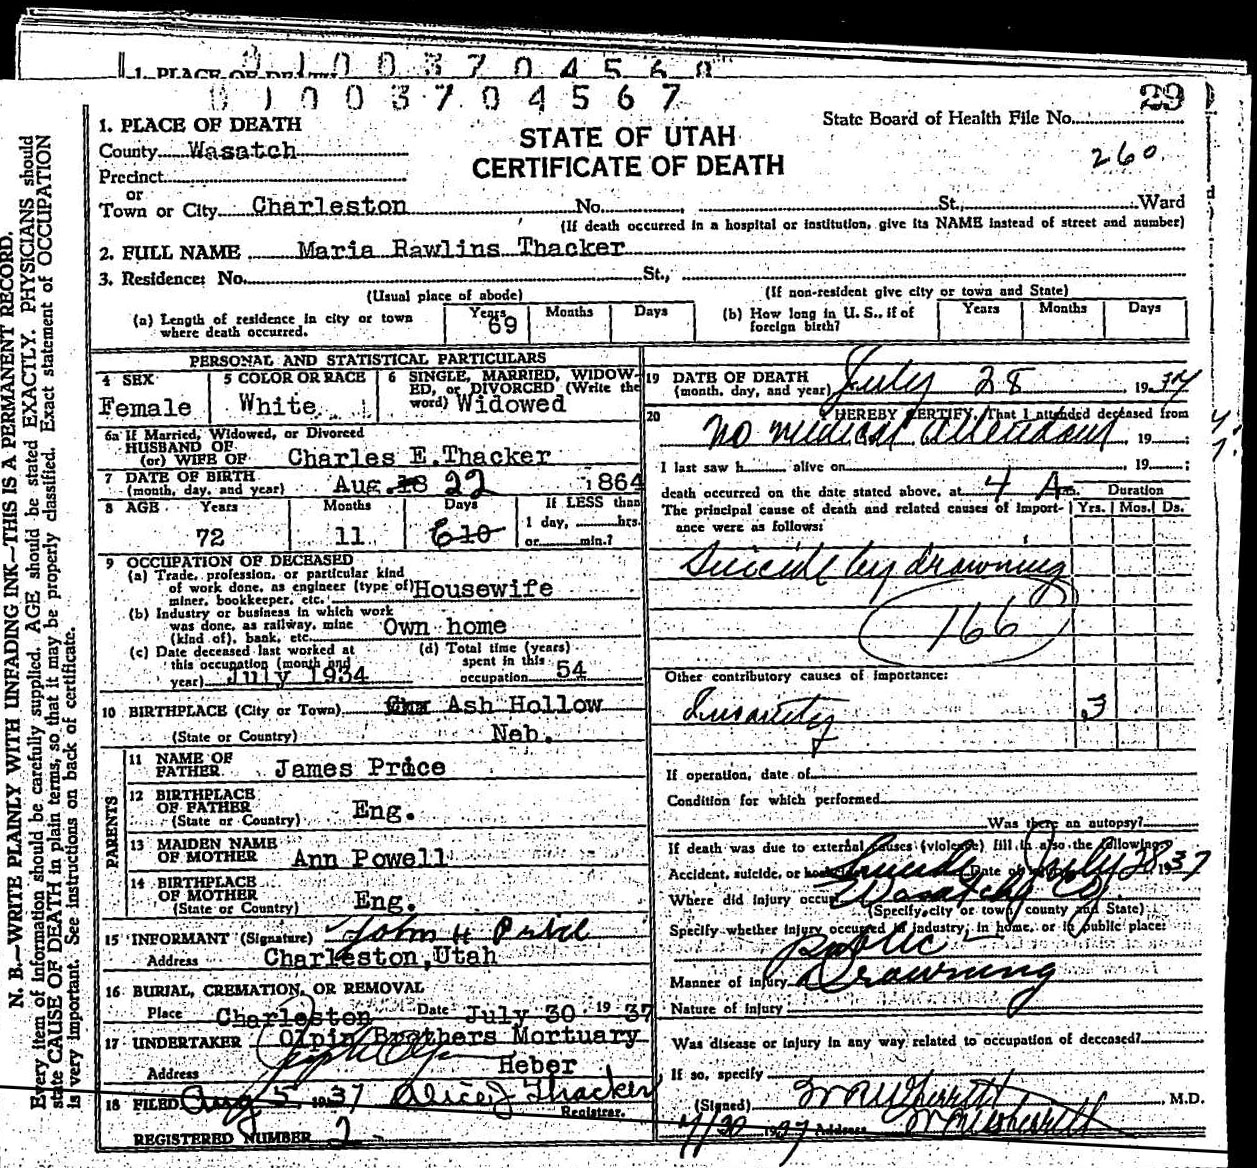 1. PLACE OF DEATH 0 1 0 0 3 7 0 4 5 6 8
0 1 0 0 3 7 0 4 5 6 7
29
State Board of Health File No.
260
STATE OF UTAH
CERTIFICATE OF DEATH
1. PLACE OF DEATH
County Wasatch
Precinct
or
Town or City Charleston No. St., Ward
(If death occurred in a hospital or institution, give its NAME instead of street and number)
2. FULL NAME Maria Rawlins Thacker
3. Residence: No. St.,
(Usual place of abode) (If non-resident give city or town and State)
(a) Length of residence in city or town where death occurred. Years 69 Months Days
(b) How long in U. S., if of foreign birth? Years Months Days
PERSONAL AND STATISTICAL PARTICULARS
4 SEX Female
5 COLOR OR RACE White
6 SINGLE, MARRIED, WIDOWED, or DIVORCED (Write the word) Widowed
6a If Married, Widowed, or Divorced
HUSBAND OF
(or) WIFE OF Charles E.Thacker
7 DATE OF BIRTH (month, day, and year) Aug. 18 22 1864
8 AGE Years 72 Months 11 Days 6 10 If LESS than 1 day, hrs. or min.?
9 OCCUPATION OF DECEASED
(a) Trade, profession, or particular kind
of work done, as engineer (type of) Housewife
miner, bookkeeper, etc.
(b) Industry or business in which work
was done, as railway, mine Own home
(kind of), bank, etc.
(c) Date deceased last worked at this occupation (month and year) July 1934
(d) Total time (years) spent in this occupation 54
10 BIRTHPLACE (City or Town) Ash Hollow
(State or Country) Neb.
PARENTS
11 NAME OF FATHER James Price
12 BIRTHPLACE OF FATHER (State or Country) Eng.
13 MAIDEN NAME OF MOTHER Ann Powell
14 BIRTHPLACE OF MOTHER (State or Country) Eng.
15 INFORMANT (Signature) John H Price
Address Charleston,Utah
16 BURIAL, CREMATION, OR REMOVAL
Place Charleston Date July 30 1937
17 UNDERTAKER Olpin Brothers Mortuary
Address Heber
18 FILED Aug 5, 1937 Alice J Thacker
Registrar.
REGISTERED NUMBER 2
19 DATE OF DEATH (month, day, and year) July 28 1937
20 I HEREBY CERTIFY, That I attended deceased from
No medical attendant, 19 ;
I last saw h alive on , 19 ;
death occurred on the date stated above, at 4 A m. Duration
The principal cause of death and related causes of importance were as follows: Yrs. Mos. Ds.
Suicide by drowning
166
Other contributory causes of importance:
Insanity 3
If operation, date of
Condition for which performed
Was there an autopsy?
If death was due to external causes (violence) fill in also the following:
Accident, suicide, or homicide Suicide Date of injury July 28 1937
Where did injury occur Wasatch Co
(Specify city or town, county and State)
Specify whether injury occurred in industry, in home, or in public place:
Public
Manner of injury Drowning
Nature of injury
Was disease or injury in any way related to occupation of deceased?
If so, specify
(Signed) , M.D.
7/30 1937 Address
N. B.—WRITE PLAINLY WITH UNFADING INK—THIS IS A PERMANENT RECORD.
Every item of information should be carefully supplied. AGE should be stated EXACTLY. PHYSICIANS should
state CAUSE OF DEATH in plain terms, so that it may be properly classified. Exact statement of OCCUPATION
is very important. See instructions on back of certificate.